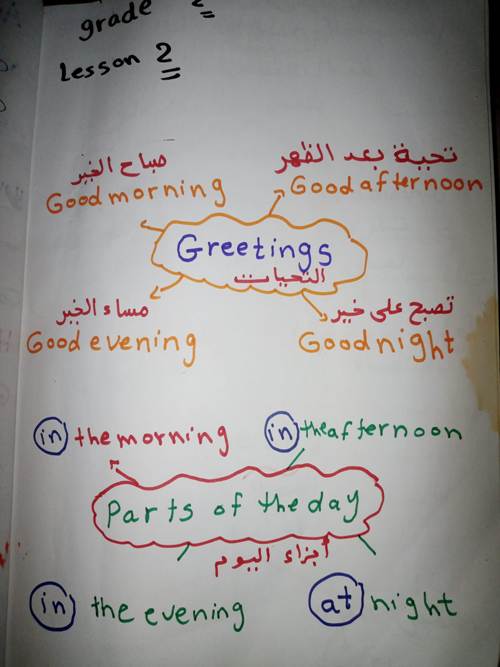 grade 2
Lesson 2
صباح الخير
تحية بعد الظهر
Good morning
Good afternoon
Greetings
التحيات
مساء الخير
تصبح على خير
Good evening
Good night
in the morning
in the afternoon
Parts of the day
أجزاء اليوم
in the evening
at night